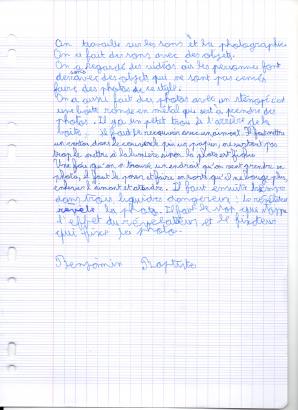 On travaille sur les sons et la photographie.
On a fait des sons avec des objets.
On a regardé des vidéos où les personnes font
des sons avec des objets qui ne sont pas censés
faire des photos de ce style.
On a aussi fait des photos avec un sténopé c'est
une boîte ronde en métal qui sert à prendre des
photos. Il y a un petit trou à l'arrière de la
boîte. Il faut le recouvrir avec un aimant. Il faut mettre
un carton dans le couvercle puis un papier, surtout pas
trop le mettre à la lumière sinon la photo est fichue
Une fois qu'on a trouvé un endroit qu'on veut prendre en
photo, il faut le poser et faire en sorte qu'il ne bouge plus
enlever l'aimant et attendre. Il faut ensuite
dans trois liquides dangereux : le révélateur
révèle la photo. Il faut le stop qui stoppe
l'effet du révélateur et le fixateur
qui fixe la photo.
Benjamin Baptiste